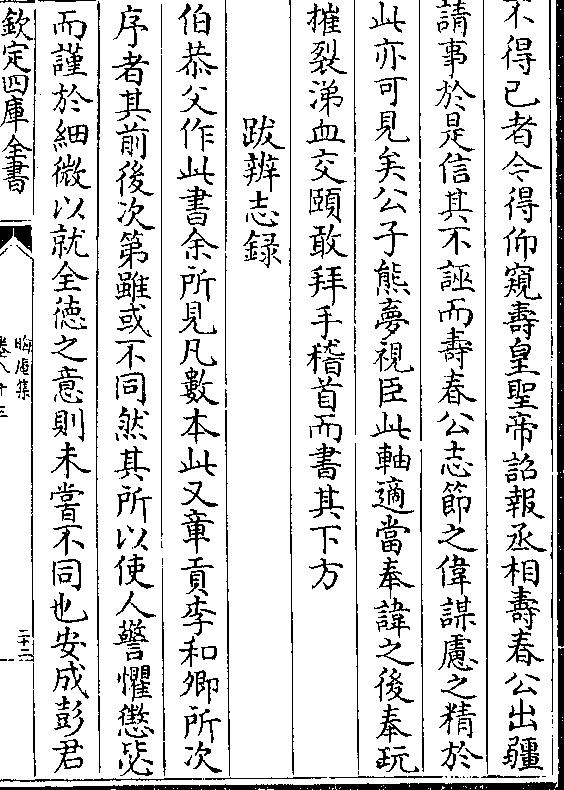 不得已者今得仰窺壽皇聖帝詔報丞相壽春公出疆
請事於是信其不誣而壽春公志節之偉謀慮之精於
此亦可見矣公子熊夢視臣此軸適當奉諱之後奉玩
摧裂涕血交頤敢拜手稽首而書其下方
跋辨志録
伯恭父作此書余所見凡數本此又章貢李和卿所次
序者其前後次第雖或不同然其所以使人警懼懲毖
而謹於細微以就全徳之意則未嘗不同也安成彭君
欽定四庫全書
晦庵集
卷八十三
三十二